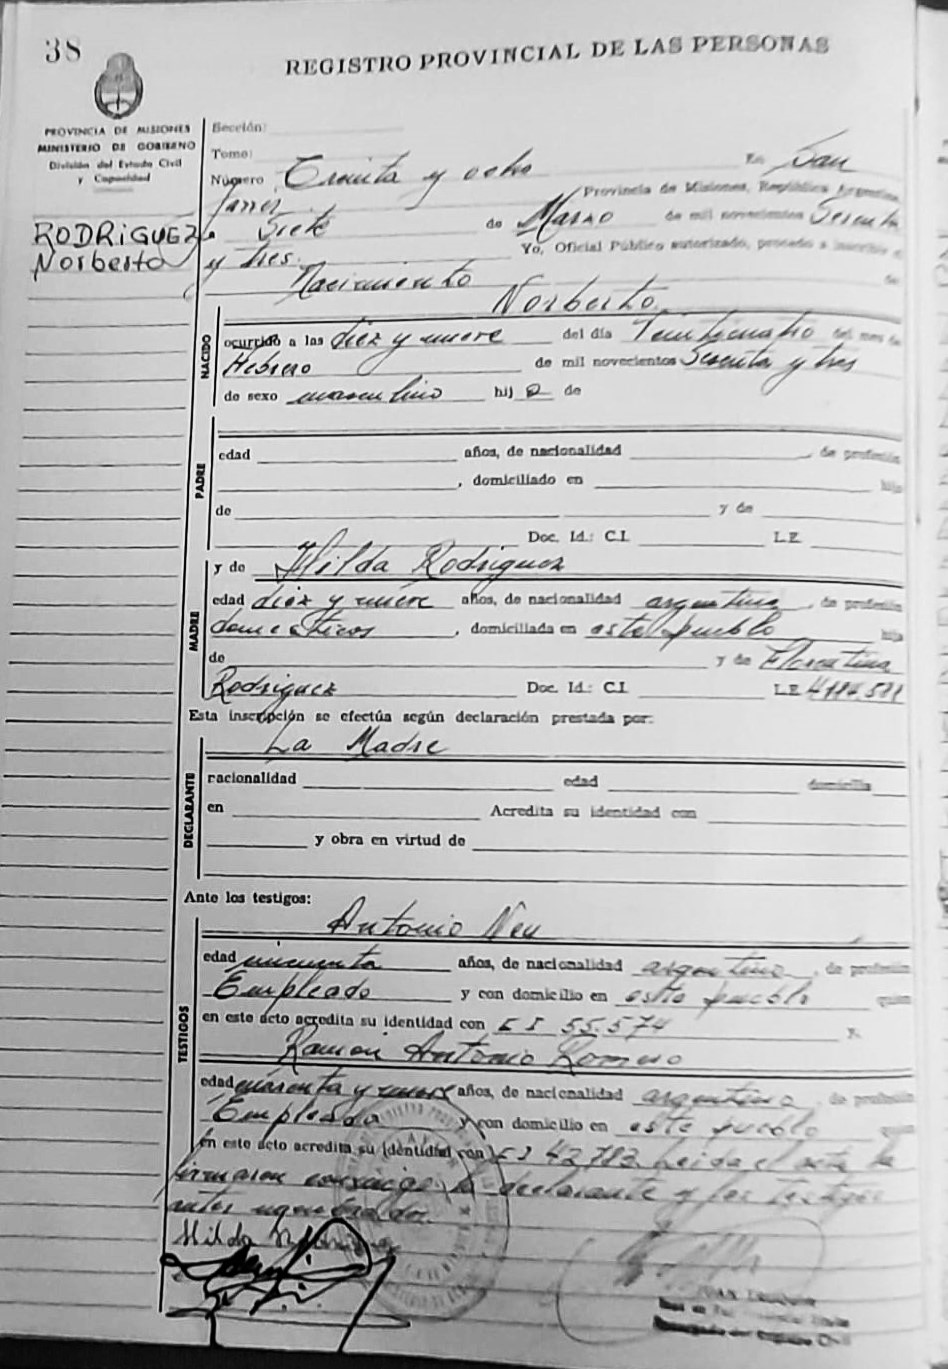 38
REGISTRO PROVINCIAL DE LAS PERSONAS
PROVINCIA DE MISIONES
MINISTERIO DE GOBIERNO
División del Estado Civil
y Capacidad
RODRIGUEZ
Norberto
Sección:
Tomo: En San
Número Treinta y ocho
Javier Provincia de Misiones, República Argentina,
a Siete de Marzo de mil novecientos Sesenta
y tres. Yo, Oficial Público autorizado, procedo a inscribir el
Nacimiento de
Norberto
NACIDO
ocurrido a las diez y nueve del día Veinticuatro del mes de
Febrero de mil novecientos Sesenta y tres
de sexo masculino hijo de
PADRE
edad años, de nacionalidad , de profesión
, domiciliado en hijo
de y de
Doc. Id.: C.I. L.E.
MADRE
y de Hilda Rodriguez
edad diez y nueve años, de nacionalidad argentina , de profesión
domesticos , domiciliada en este pueblo hija
de y de Florentina
Rodriguez Doc. Id.: C.I. L.E. 4.184.581
Esta inscripción se efectúa según declaración prestada por:
DECLARANTE
La Madre
nacionalidad edad domicilio
en Acredita su identidad con
y obra en virtud de
Ante los testigos:
TESTIGOS
Antonio Neu
edad cincuenta años, de nacionalidad argentino , de profesión
Empleado y con domicilio en este pueblo quien
en este acto acredita su identidad con C I 55.574 y,
Ramon Antonio Romero
edad cuarenta y nueve años, de nacionalidad argentino , de profesión
Empleado y con domicilio en este pueblo quien
en este acto acredita su identidad con C I 42.783. Leida el acta la
firmaron conmigo la declarante y los testigos
antes nombrados.
Hilda Rodriguez
JUAN